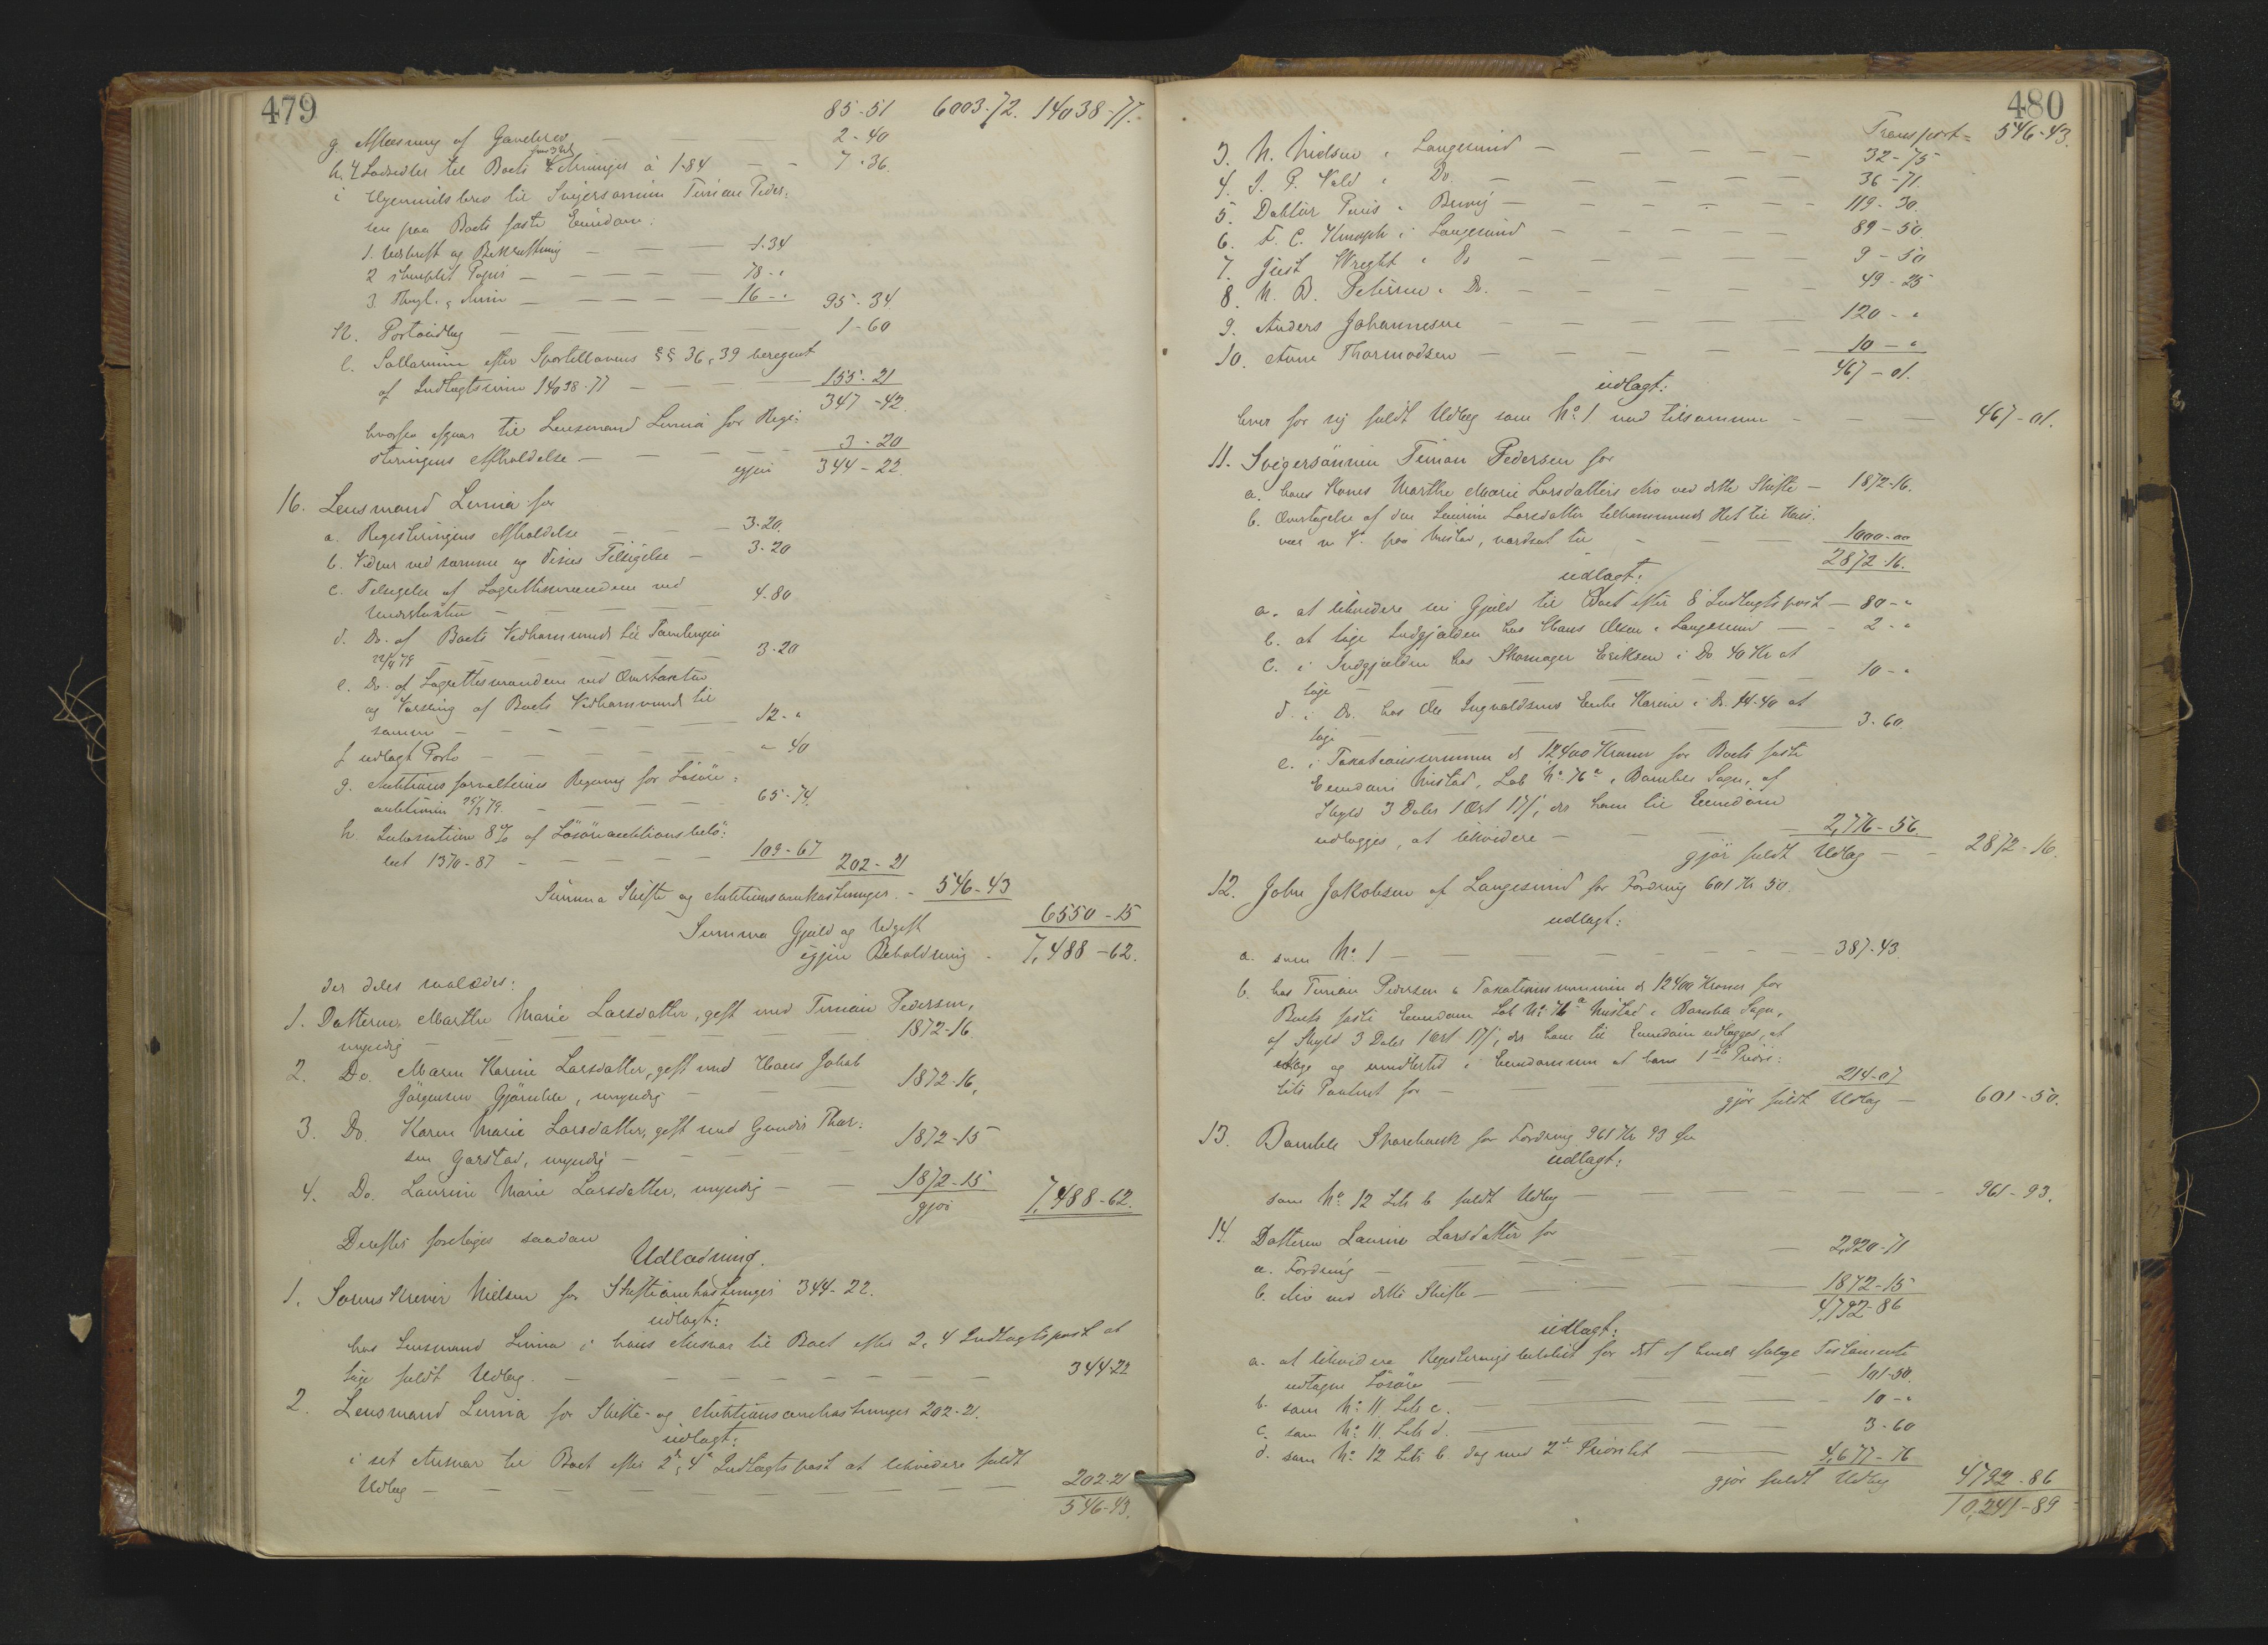 479
85-51 6003-72. 14038-77.
g. Aflæsning af Gavebrev — — — 2-40
h. 4 Lodsedler til Boets Lodninger à 1-84 — — 7-36.
i Hjemmelsbrev til Svigersønnen Tinian Peder=
sen paa Boets faste Eiendom:
1. Udskrift og Bekræftning — — — 1-34
2 stemplet Papir — — — — — 78-"
3. Thingl. — — — — — 16-" 95-34.
k. Portoudlæg — — — — — — 1-60
l. Sallarium efter Sportellovens §§ 36, 39 beregnet
af Indtægtssum 14038-77 — — — — 155-21
347-42.
hvorfra afgaar til Lensmand Linna for Regi=
streringens Afholdelse — — — — — 3-20
igjen 344-22
16. Lensmand Linna for
a. Registreringens Afholdelse — — — 3-20.
b. Vidner ved samme og disses Tilsigelse — 3-20
c. Tilsigelse af Lagrettesmændene ved
Undertaxten — — — — — 4-80
d. Do. af Boets Vedkommende til Samlingen
22/4 79 — — — — — 3-20
e. Do. af Lagrettesmændene ved Overtaxten
og Varsling af Boets Vedkommende til
samme — — — — — 12-"
f udlagt Porto — — — — — "-40
g. Auktionsforvalterens Regning for Løsøre=
auktionen 25/3 79. — — — — 65-74.
h. Inkassation 8 % af Løsøreauktionsbelø=
bet 1370-87 — — — — — 109-67 202-21
Summa Skifte og Auktionsomkostninger — 546-43
6550-15
Summa Gjæld og Udgift
igjen Beholdning — 7,488-62.
der deles saaledes:
1. Datteren Marthe Marie Larsdatter, gift med Tinian Pedersen,
myndig — — — — — 1872-16.
2. Do. Maren Karine Larsdatter, gift med Hans Jakob
Jørgensen Gjømle, myndig — — 1872-16.
3. Do. Karen Marie Larsdatter, gift med Gunder Thor=
sen Garstad, myndig — — — 1872-15
4. Do. Laurine Marie Larsdatter, myndig — — 1872-15
gjør 7,488-62.
Derefter foretages saadan
Udlodning.
1. Sorenskriver Nielsen for Skifteomkostninger 344-22.
udlagt:
hos Lensmand Linna i hans Ansvar til Boet efter 2, 4 Indtægtspost at
tage fuldt Udlæg — — — — — — — 344-22
2. Lensmand Linna for Skifte- og Auktionsomkostninger 202-21.
udlagt:
i sit Ansvar til Boet efter 2d, 4d Indtægtspost at likvidere fuldt
Udlæg — — — — — — — — 202-21
546-43.
480
Transport = 546-43.
3. N. Nielsen i Langesund — — — — — 32-75
4. J. P. Vold i Do. — — — — — 36-71.
5. Doktor Puris i Brevig — — — — — 119-30.
6. F. C. Knoph i Langesund — — — — — 89-50.
7. Just Wright i Do — — — — — 9-50
8. N. B. Petersen i Do. — — — — — 49-25
9. Anders Johannesen — — — — — 120-"
10. Anne Thormodsen — — — — — 10-"
467-01.
udlagt:
hver for sig fuldt Udlæg som No. 1 med tilsammen — — — 467-01.
11. Svigersønnen Tinian Pedersen for
a. hans Kones Marthe Marie Larsdatters Arv ved dette Skifte — 1872-16.
b. Overtagelse af den Laurine Larsdatter tilkommende Ret til Huus=
vær m. V. paa Nustad, værdsat til — — — 1000-00
2872-16.
udlagt:
a. at likvidere sin Gjæld til Boet efter 8 Indtægtspost — 80-"
b. at tage Indgjælden hos Hans Olsen i Langesund — — 2-"
c. i Indgjælden hos Skomager Eriksen i Do 40 Kr at
tage — — — — — — — 10-"
d. i Do. hos Ole Ingvaldsens Enke Karine i Do. 14-40 at
tage — — — — — — — 3-60
e. i Taxationssummen de 12,400 Kroner for Boets faste
Eiendom Nustad, Løb No. 76a i Bamble Sogn, af
Skyld 3 Daler 1 Ort 17 ß, der ham til Eiendom
udlægges, at likvidere — — — — 2,776-56.
gjør fuldt Udlæg — — 2872-16.
12. John Jakobsen af Langesund for Fordring 601 Kr 50.
udlagt:
a. som No. 1 — — — — — — — 387-43.
b. hos Tinian Pedersen i Taxationssummen de 12400 Kroner for
Boets faste Eiendom Løb No. 76a Nustad i Bamble Sogn,
af Skyld 3 Daler 1 Ort 17 ß, der ham til Eiendom udlægges, at
tage og imidlertid i Eiendommen at have 1ste Priori=
tets Panteret for — — — — 214-07
gjør fuldt Udlæg — 601-50.
13. Bamble Sparebank for Fordring 961 Kr 93 Øre
udlagt:
som No. 12 Litr b fuldt Udlæg — — — — — 961-93.
14. Datteren Laurine Larsdatter for
a. Fordring — — — — — 2,920-71
b. Arv ved dette Skifte — — — — — 1872-15
4,792-86
udlagt:
a. at likvidere Registreringsbeløbet for det af hende ifølge Testamente
udtagne Løsøre — — — — — 101-50.
b. som No. 11 Litr c. — — — — — 10-"
c. som No. 11. Litr d. — — — — — 3-60
d. som No. 12 Litr b dog med 2d Prioritet — — 4,677-76
gjør fuldt Udlæg 4792-86
10,241-89